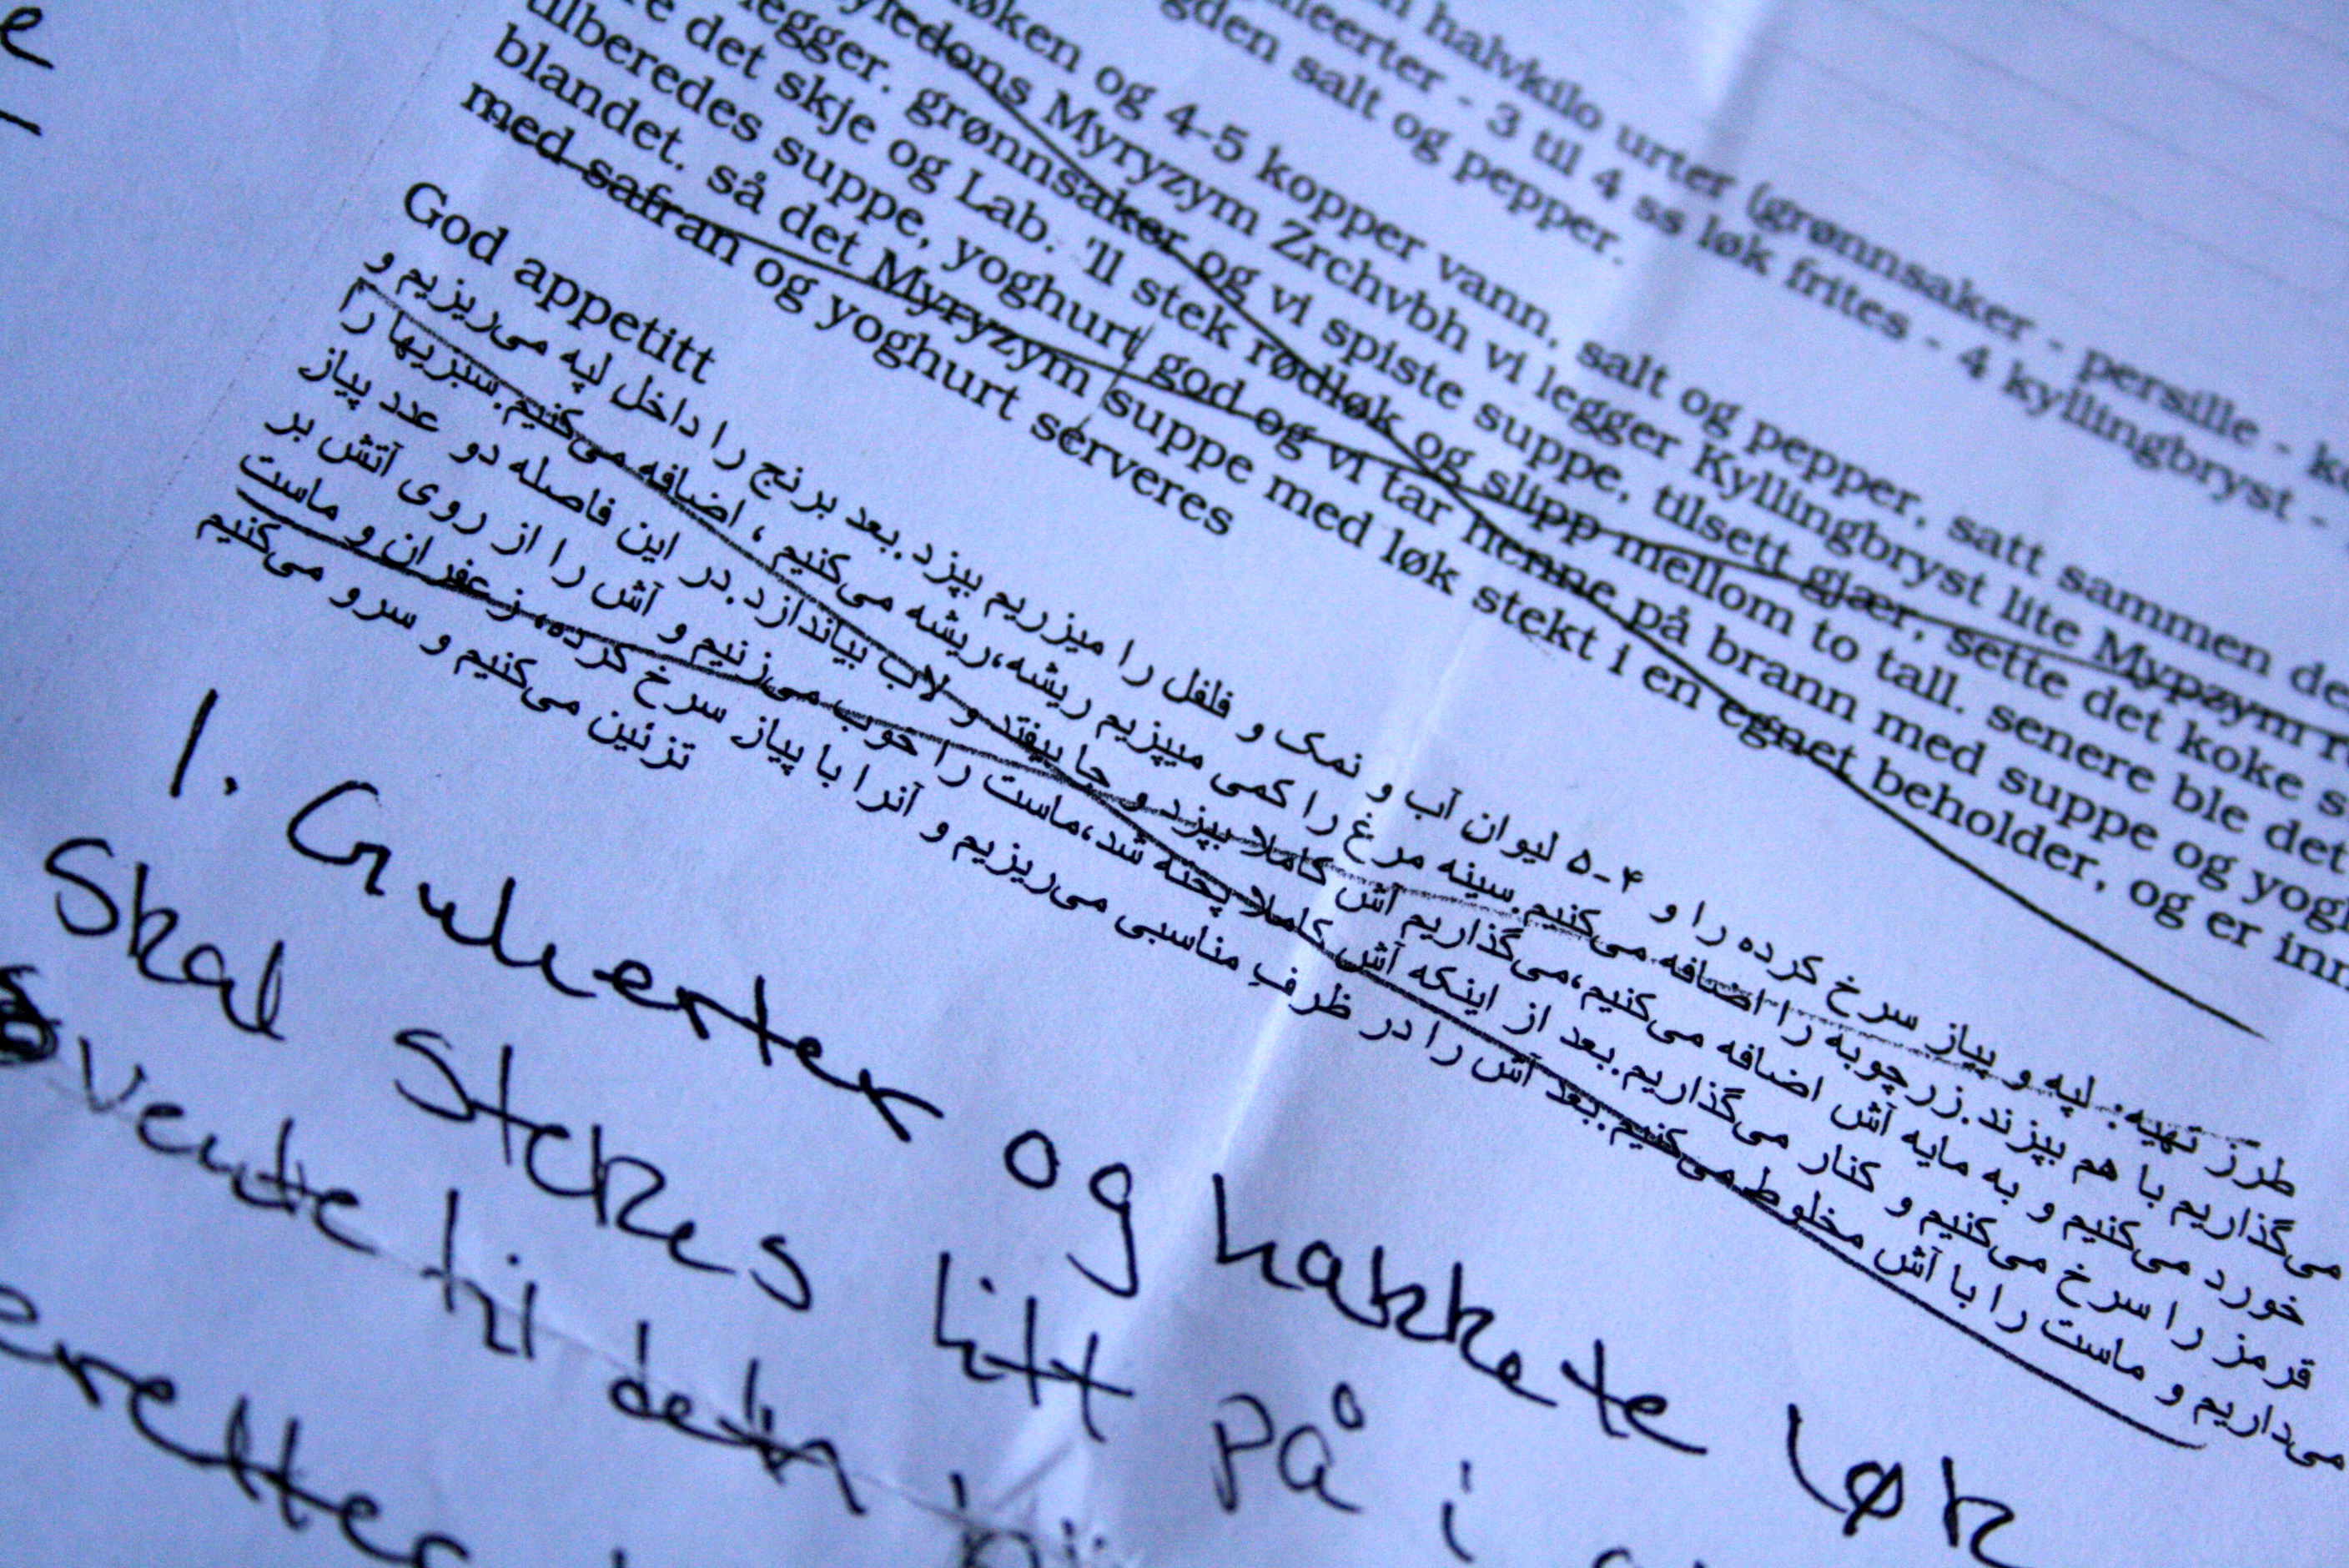 halvkilo urter (grønnsaker - persille -
- 3 til 4 ss løk frites - 4 kyllingbryst -
salt og pepper.
løken og 4-5 kopper vann, salt og pepper, satt sammen
Myryzym Zrchvbh vi legger Kyllingbryst lite Mypzym
legger. grønnsaker og vi spiste suppe, tilsett gjær, sette det koke
det skje og Lab. 'll stek rødløk og slipp mellom to tall. senere ble det
tilberedes suppe, yoghurt god og vi tar henne på brann med suppe og
blandet. så det Myryzym suppe med løk stekt i en egnet beholder, og er
med safran og yoghurt serveres
God appetitt
طرز تهیه: لپه و پیاز سرخ کرده را و ۴-۵ لیوان آب و نمک و فلفل را میزریم بپزد.بعد برنج را داخل لپه می‌ریزیم و
می‌گذاریم با هم بپزند.زرچوبه را اضافه می‌کنیم.سینه مرغ را کمی میپزیم ریشه،ریشه می‌کنیم ، اضافه می‌کنیم.سبزیها را
خورد می‌کنیم و به مایه آش اضافه می‌کنیم،می‌گذاریم آش کاملا بپزد و جا بیفتد و لاب بیاندازد.در این فاصله دو عدد پیاز
قرمز را سرخ می‌کنیم و کنار می‌گذاریم.بعد از اینکه آش کاملا پخته شد،ماست را خوب می‌زنیم و آش را از روی آتش بر
می‌داریم و ماست را با آش مخلوط می‌کنیم.بعد آش را در ظرف مناسبی می‌ریزیم و آنرا با پیاز سرخ کرده، زعفران و ماست
تزئین می‌کنیم و سرو می‌کنیم
1. Gulerter og hakkete løk
Skal stekes litt på i
vente til deth